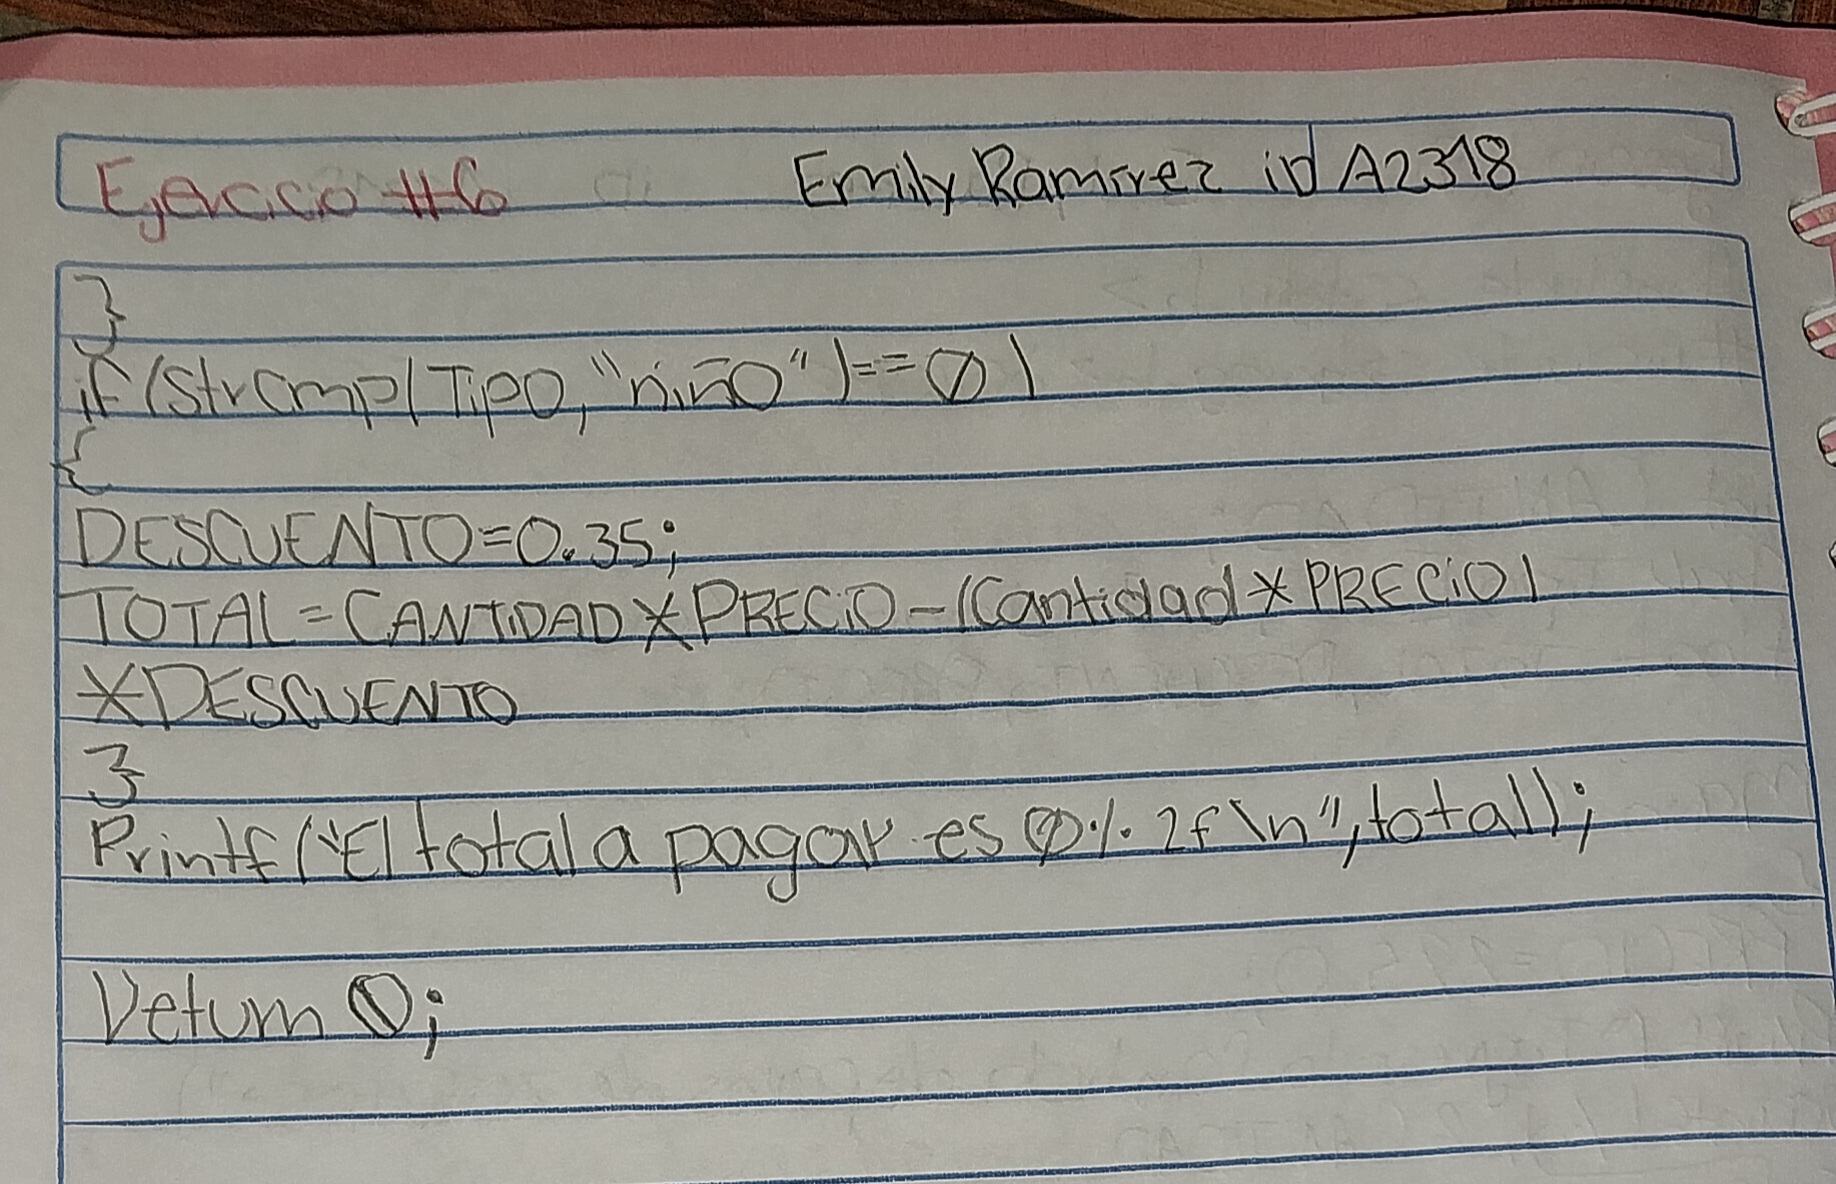 Ejercicio #6 Emily Ramirez id A2318
}
if (StrCmp(Tipo, "niño")==0)
{
DESCUENTO=0.35;
TOTAL=CANTIDAD*PRECIO-(Cantidad*PRECIO)
*DESCUENTO
}
Printf("El total a pagar es 0%.2f\n",total);
Return 0;